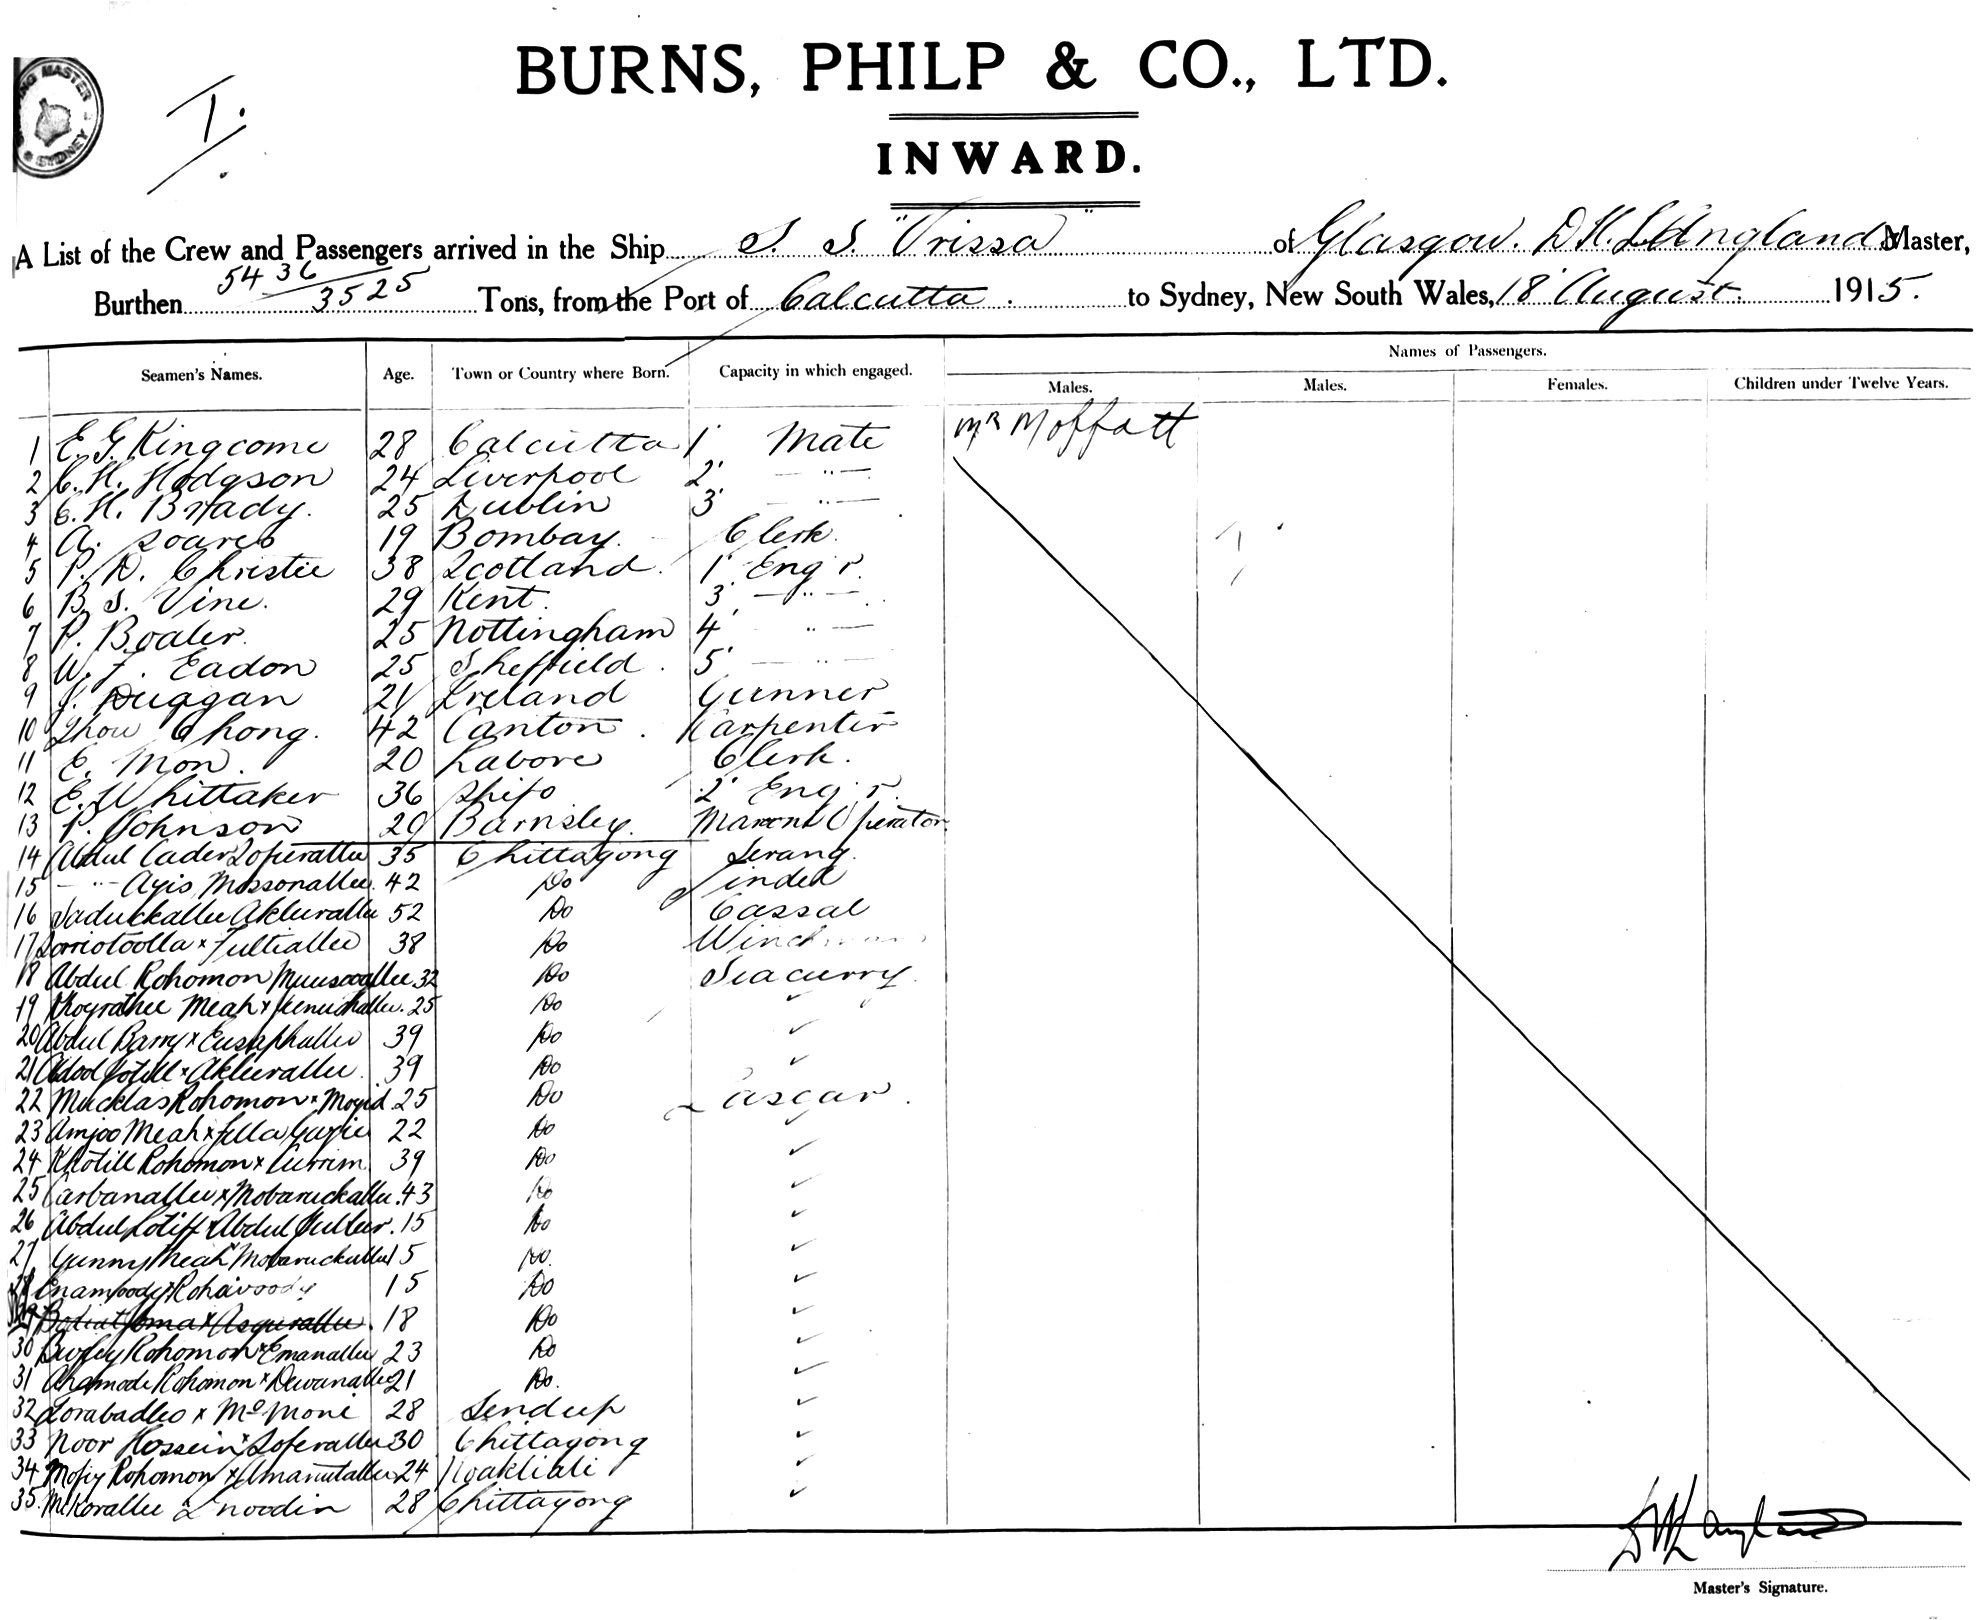 BURNS, PHILP & CO., LTD.
INWARD.
MASTER
SYDNEY
A List of the Crew and Passengers arrived in the Ship S. S. "Orissa" of Glasgow. D. H. Langland Master,
Burthen 5436 3525 Tons, from the Port of Calcutta. to Sydney, New South Wales, 18 August. 1915.
Seamen's Names. Age. Town or Country where Born. Capacity in which engaged. Names of Passengers.
Males. Males. Females. Children under Twelve Years.
Mr Moffatt
1 E. G. Kingcome 28 Calcutta 1 Mate
2 C. H. Hodgson 24 Liverpool 2 "
3 C. H. Brady. 25 Dublin 3 "
4 A. Soares 19 Bombay. Clerk.
5 P. D. Christie 38 Scotland. 1 Eng r.
6 B. S. Vine. 29 Kent. 3 "
7 P. Boaler. 25 Nottingham 4 "
8 W. F. Eadon 25 Sheffield. 5 "
9 J. Duggan 21 Ireland Gunner
10 Chong. 42 Canton. Carpenter
11 E. Mon. 20 Lahore Clerk.
12 E. Whittaker 36 2 Eng r.
13 P. Johnson 29 Barnsley. Marconi Operator
14 Abdul Cader 35 Chittagong Serang.
15 " Ayis Mossonallee. 42 Do Tindel
16 Akluvallee 52 Do Cassal
17 38 Do Winchman
18 Abdul Rohomon 32 Do Seacurry.
19 Meah x 25 Do ✓
20 Abdul Barry x 39 Do ✓
21 x Akluvallee. 39 Do ✓
22 Mucklas Rohomon x 25 Do Lascar.
23 Amjoo Meah x 22 Do ✓
24 Rohomon x Currim 39 Do ✓
25 x Mobaruckallee. 43 Do ✓
26 Abdul Lotiff x Abdul 15 Do ✓
27 Gunny Meah Mobaruckallee 15 Do. ✓
28 15 Do ✓
29 x 18 Do ✓
30 Rohomon x Emanallee 23 Do ✓
31 Ahamode Rohomon x Dewanallee 21 Do. ✓
32 x Mo Moni 28 Sendup ✓
33 Noor Hossein x 30 Chittagong ✓
34 Rohomon x 24 Noakhali ✓
35. 28 Chittagong ✓
Master's Signature.